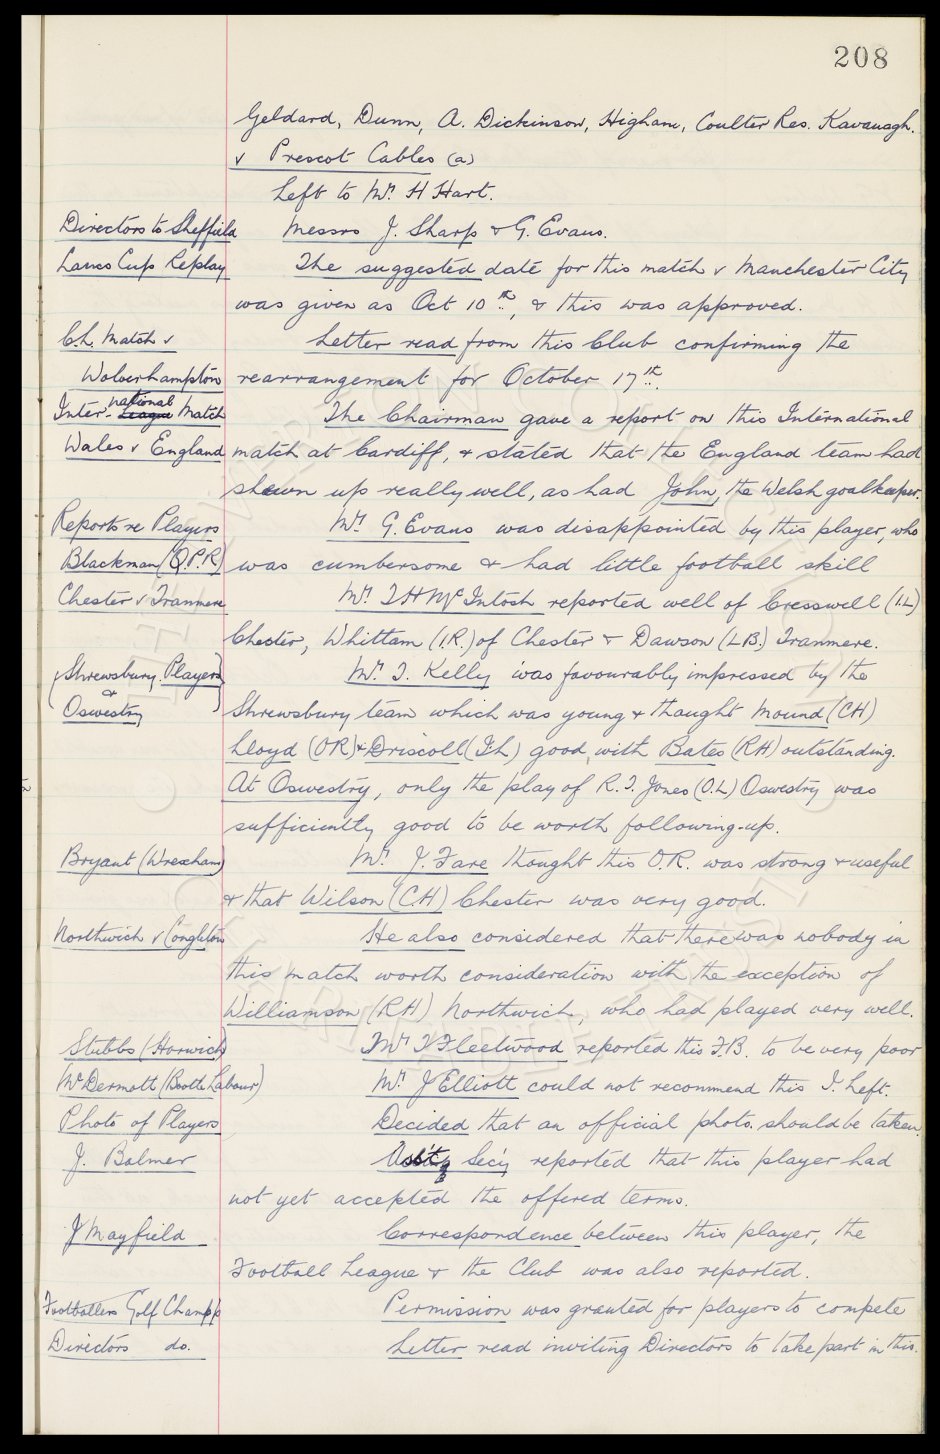 208
Geldard, Dunn, A. Dickinson, Higham, Coulter Res. Kavanagh.
v Prescot Cables (a)
Left to Mr. H Hart.
Directors to Sheffield Messrs J. Sharp & G. Evans.
Lancs Cup Replay The suggested date for this match v Manchester City
was given as Oct 10th, & this was approved.
C.L. Match v Letter read from this Club confirming the
Wolverhampton rearrangement for October 17th.
Inter-national Match The Chairman gave a report on this International
Wales v England match at Cardiff, & stated that the England team had
shewn up really well, as had John, the Welsh goalkeeper.
Reports re Players Mr. G. Evans was disappointed by this player, who
Blackman (Q.P.R) was cumbersome & had little football skill
Chester v Tranmere Mr. T H McIntosh reported well of Cresswell (I.L)
Chester, Whittam (I.R.) of Chester & Dawson (L.B.) Tranmere.
(Shrewsbury Players) Mr. T. Kelly was favourably impressed by the
& Oswestry Shrewsbury team which was young & thought Mound (CH)
Lloyd (OR) & Driscoll (IL) good, with Bates (RH) outstanding.
At Oswestry, only the play of R. T. Jones (O.L) Oswestry was
sufficiently good to be worth following-up.
Bryant (Wrexham) Mr. J. Fare thought this O.R. was strong & useful
& that Wilson (CH) Chester was very good.
Northwich v Congleton He also considered that there was nobody in
this match worth consideration with the exception of
Williamson (RH) Northwich, who had played very well.
Stubbs (Horwich) Mr T Fleetwood reported this F.B. to be very poor
McDermott (Bootle Labour) Mr. J Elliott could not recommend this I. Left.
Photo of Players Decided that an official photo. should be taken.
J. Bolmer Ass't Sec'y reported that this player had
not yet accepted the offered terms.
J Mayfield Correspondence between this player, the
Football League & the Club was also reported.
Footballers Golf Champp Permission was granted for players to compete
Directors do. Letter read inviting Directors to take part in this.